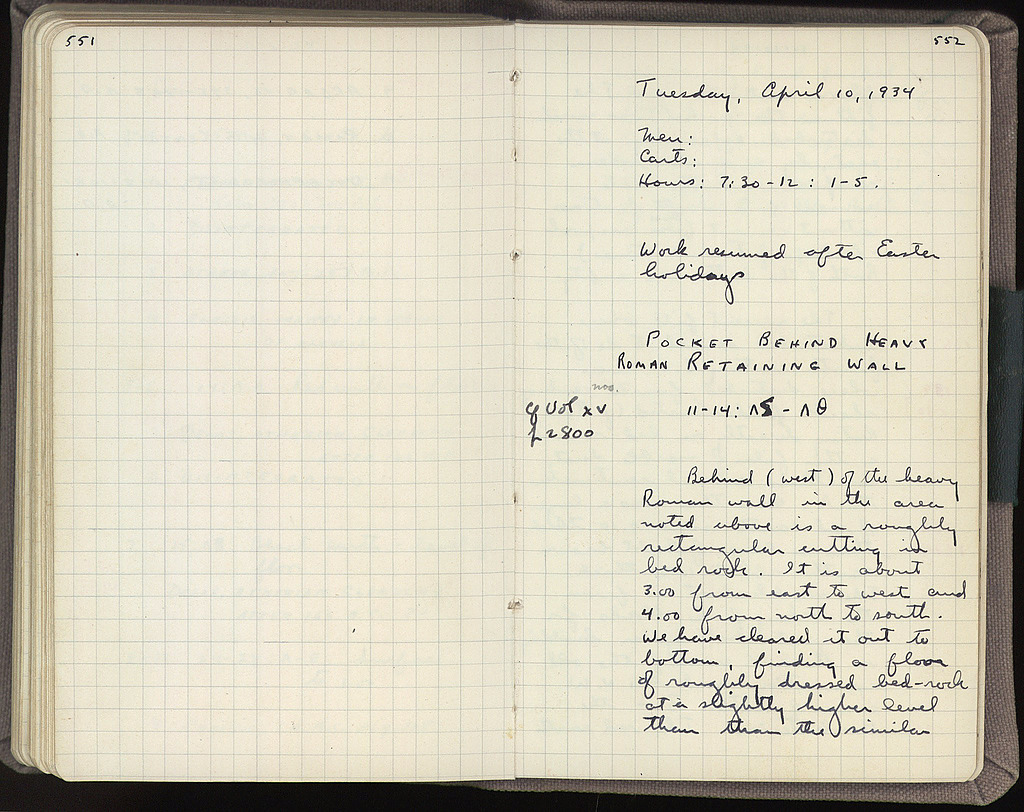 551
552
Tuesday, April 10, 1934
Men:
Carts:
Hours: 7:30-12 : 1-5.
Work resumed after Easter
holidays
POCKET BEHIND HEAVY
ROMAN RETAINING WALL
nos.
cf Vol XV
p 2800
11-14: ΛΣ - ΛΘ
Behind (west) of the heavy
Roman wall in the area
noted above is a roughly
rectangular cutting in
bed rock. It is about
3.00 from east to west and
4.00 from north to south.
We have cleared it out to
bottom, finding a floor
of roughly dressed bed-rock
at a slightly higher level
than than the similar